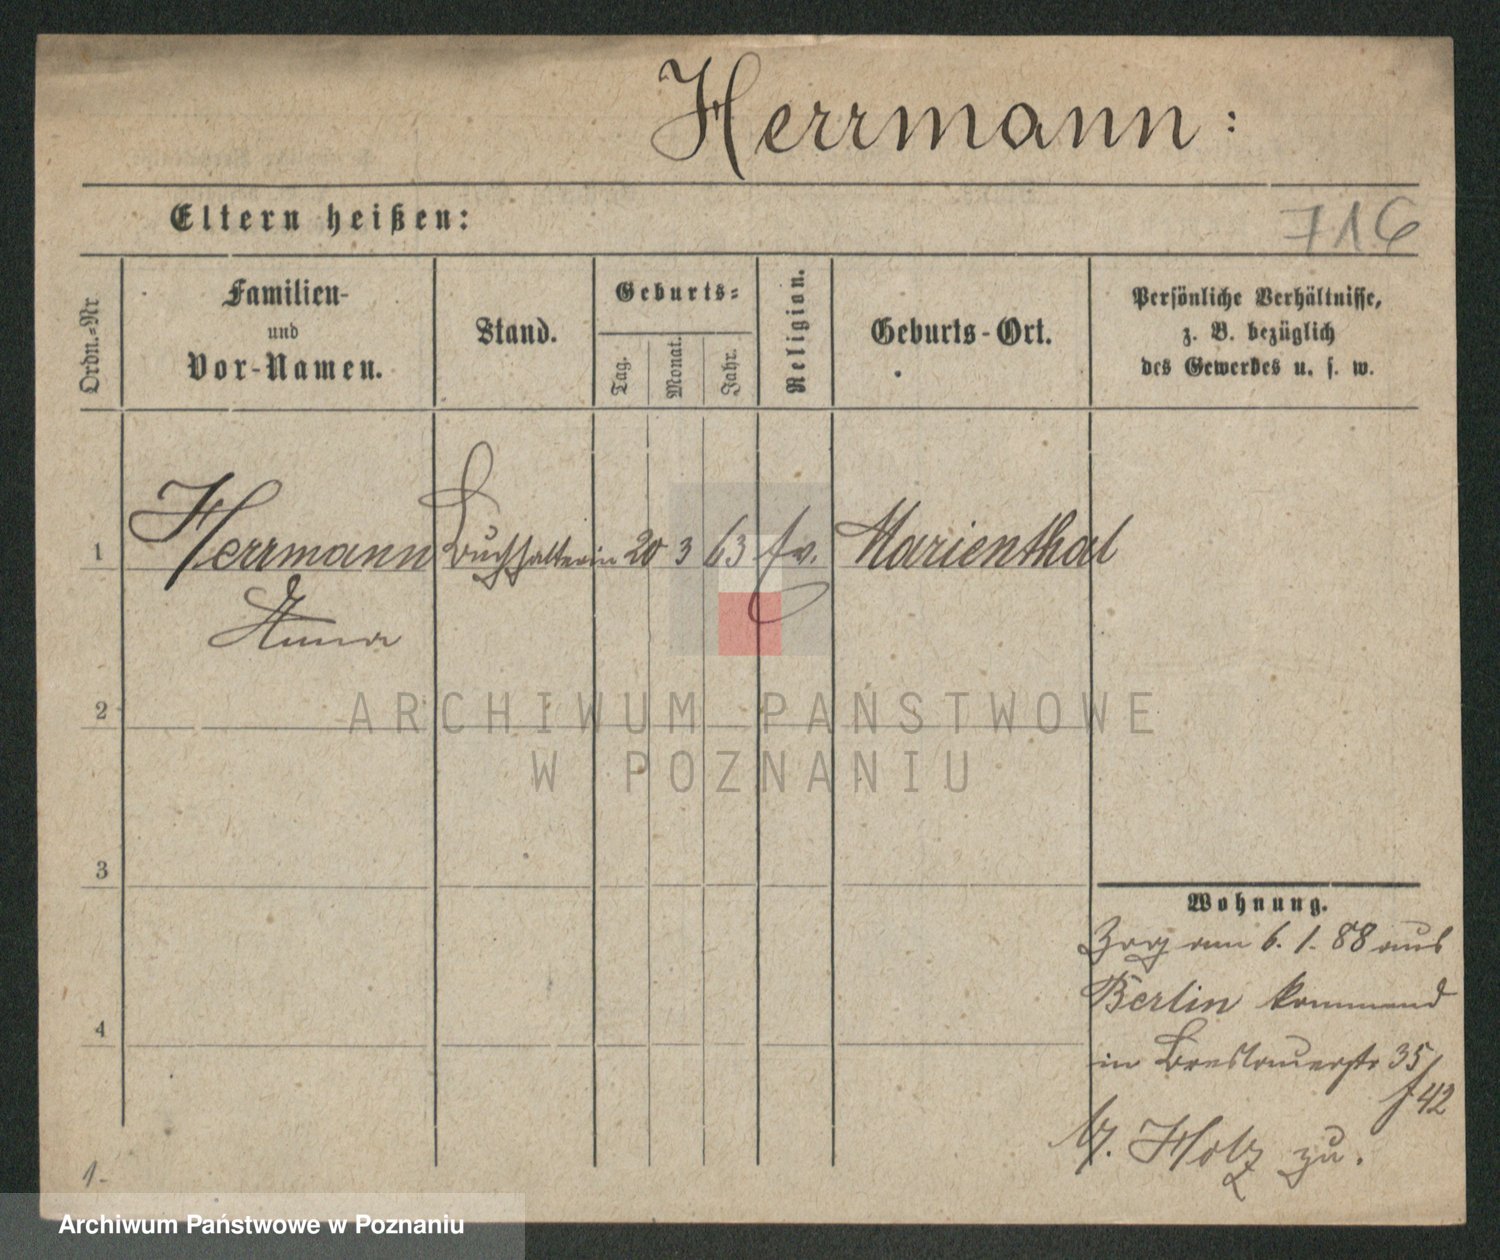 Herrmann:
Eltern heißen:
716
Ordn.-Nr
Familien-
und
Vor-Namen.
Stand.
Geburts-
Tag.
Monat.
Jahr.
Religion.
Geburts-Ort.
Persönliche Verhältnisse,
z. B. bezüglich
des Gewerbes u. s. w.
1 Herrmann Buchhalterin 20 3 63 ev. Marienthal
Anna
2
ARCHIWUM PAŃSTWOWE
W POZNANIU
3
4
Wohnung.
Zog am 6. 1. 88 aus
Berlin kommend
in Breslauerstr 35
f 42
b/. Holz zu.
1-
Archiwum Państwowe w Poznaniu